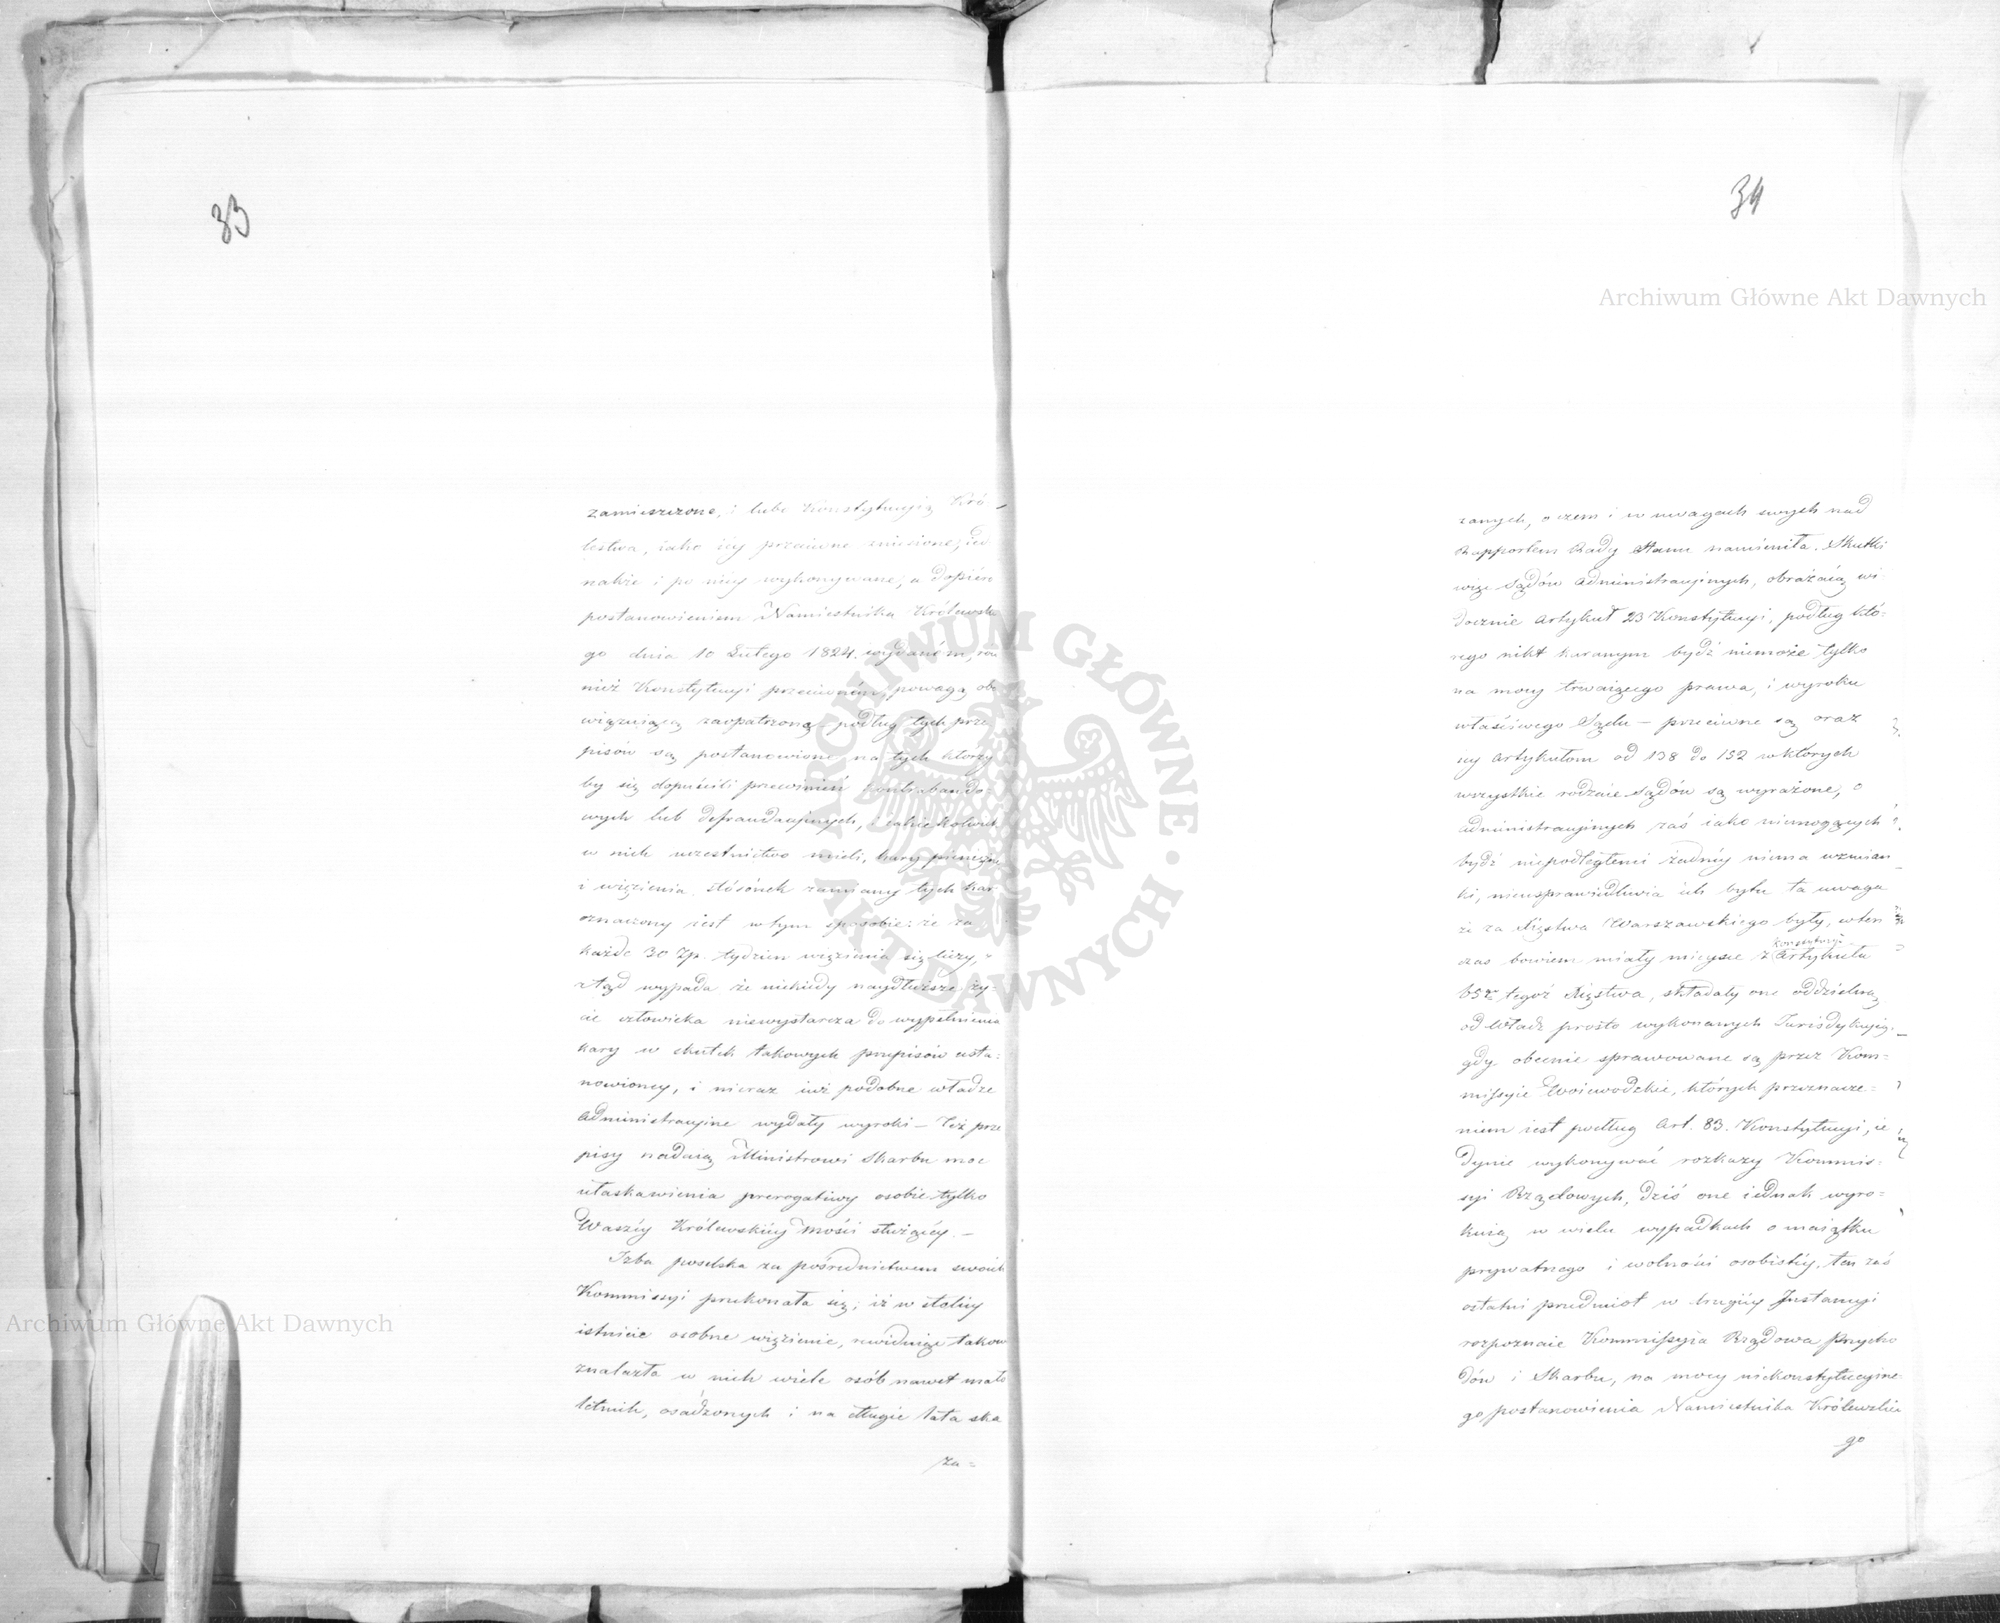 33
zamieszczone, i lubo Konstytucyią Kró-
lestwa, iako iey przeciwne zniesione, ied
nakże i po niey wykonywane, a dopiero
postanowieniem Namiestnika Królewskie
go dnia 10 Lutego 1824. wydaném, rów
nież Konstytucyi przeciwném, powagą obo
wiązuiącą zaopatrzone – podług tych prze
pisów są postanowione na tych którzy
by się dopuścili przewinień kontrabando-
wych lub defraudacyinych, i iakiekolwiek
w nich uczestnictwo mieli, kary pieniężne
i więzienia. stósónek zamiany tych kar
oznaczony iest w tym sposobie: że za
każde 30 Zp. tydzien więzienia się liczy,
ztąd wypada że niekiedy naydłuższe ży-
cie człowieka niewystarcza do wypełnienia
kary w skutek takowych przepisów usta-
nowioney, i nieraz iuż podobne władze
administracyine wydały wyroki – Też prze
pisy nadaią Ministrowi Skarbu moc
ułaskawienia prerogatiwy osobie tylko
Waszéy Królewskiéy Mości służącéy. –
Izba poselska za pośrednictwem swoich
Kommissyi przekonała się, iż w stolicy
istnieie osobne więzienie, zwidziaiąc takow
znalazła w nich wiele osób nawet mało
letnich, osadzonych i na długie lata ska
za=
34
zanych, o czem i w uwagach swych nad
Rapportem Rady Stanu namieniła. Skutki
więc Sądów administracyinych, obrażaią wi
docznie artykuł 23 Konstytucyi, podług któ-
rego nikt karanym bydź niemoże tylko
na mocy trwaiącego prawa, i wyroku
właściwego Sądu – przeciwne są oraz
iey artykułom od 138 do 152 w których
wszystkie rodzaie Sądów są wyrażone, o
administracyinych zaś iako niemogących
bydź niepodległemi żadnéy niema wzmian
ki, nieusprawiedliwia ich bytu ta uwaga
że za Xięstwa Warszawskiego były, wten
czas bowiem miały mieysce z Artykułu
Konstytucyi
65go tegoż Xięstwa, składały one oddzielną
od Władz prosto wykonawczych Jurisdykcyią,
gdy obecnie sprawowane są przez Kom-
missyie Woiewodzkie, których przeznacze-
niem iest podług Art. 83. Konstytucyi, ie
dynie wykonywać rozkazy Kommis-
syi Rządowych, dziś one iednak wyro-
kuią w wielu wypadkach o maiątku
prywatnego i wolności osobistéy, ten zaś
ostatni przedmiot w drugiéy Instancyi
rozpoznaie Kommissyia Rządowa Przycho
dów i Skarbu, na mocy niekonstytucyine-
go postanowienia Namiestnika Królewskie
go
Archiwum Główne Akt Dawnych
Archiwum Główne Akt Dawnych
ARCHIWUM GŁÓWNE AKT DAWNYCH